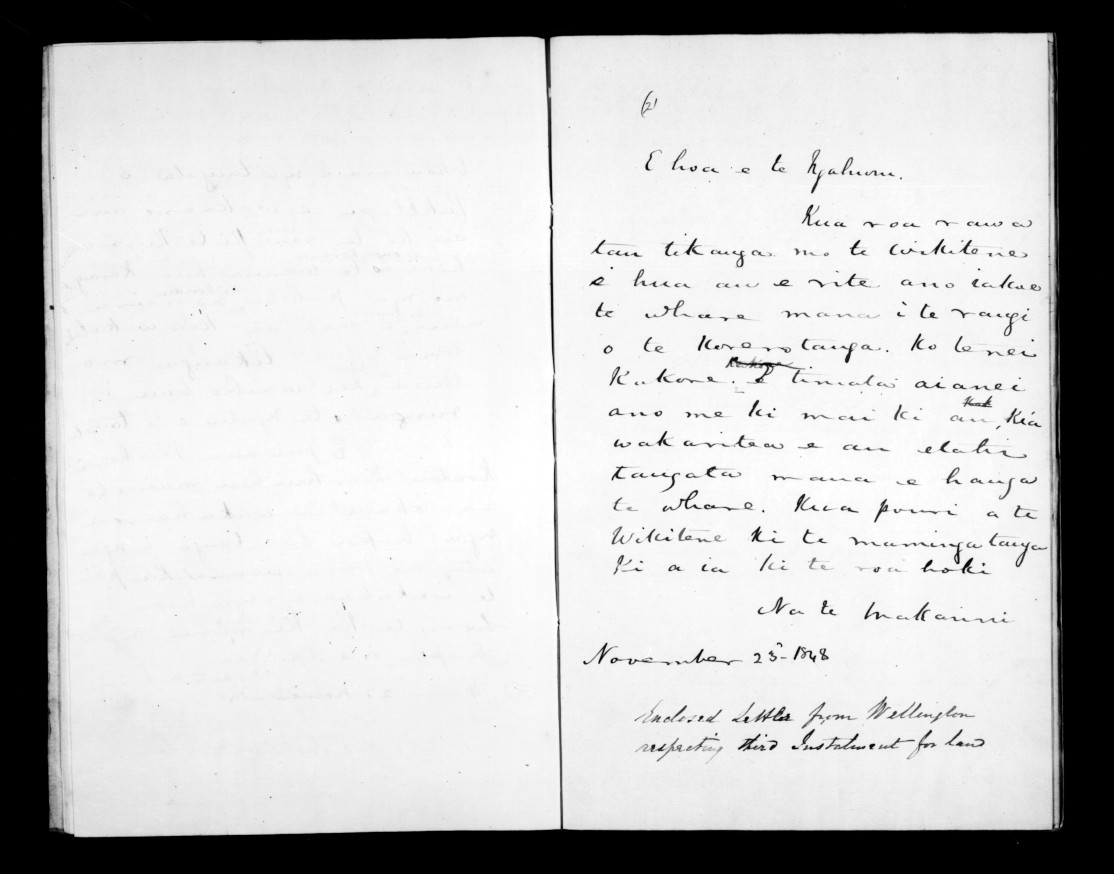 (2)
E hoa e te Ngahuru.
Kua roa rawa
tau tikanga mo te Wikitene
e hua au e rite ano iakoe
te whare mana i te rangi
o te Korerotanga. Ko tenei
Kakore. e timata aianei
ano me ki mai ki au, Kia
wakaritea e au etahi
tangata mana e hanga
te whare. Kua pouri a te
Wikitene ki te maminga tanga
Ki a ia ki te roa hoki
Na te Makarini
November 23rd 1848
Enclosed Letter from Wellington
respecting third Instalment for land